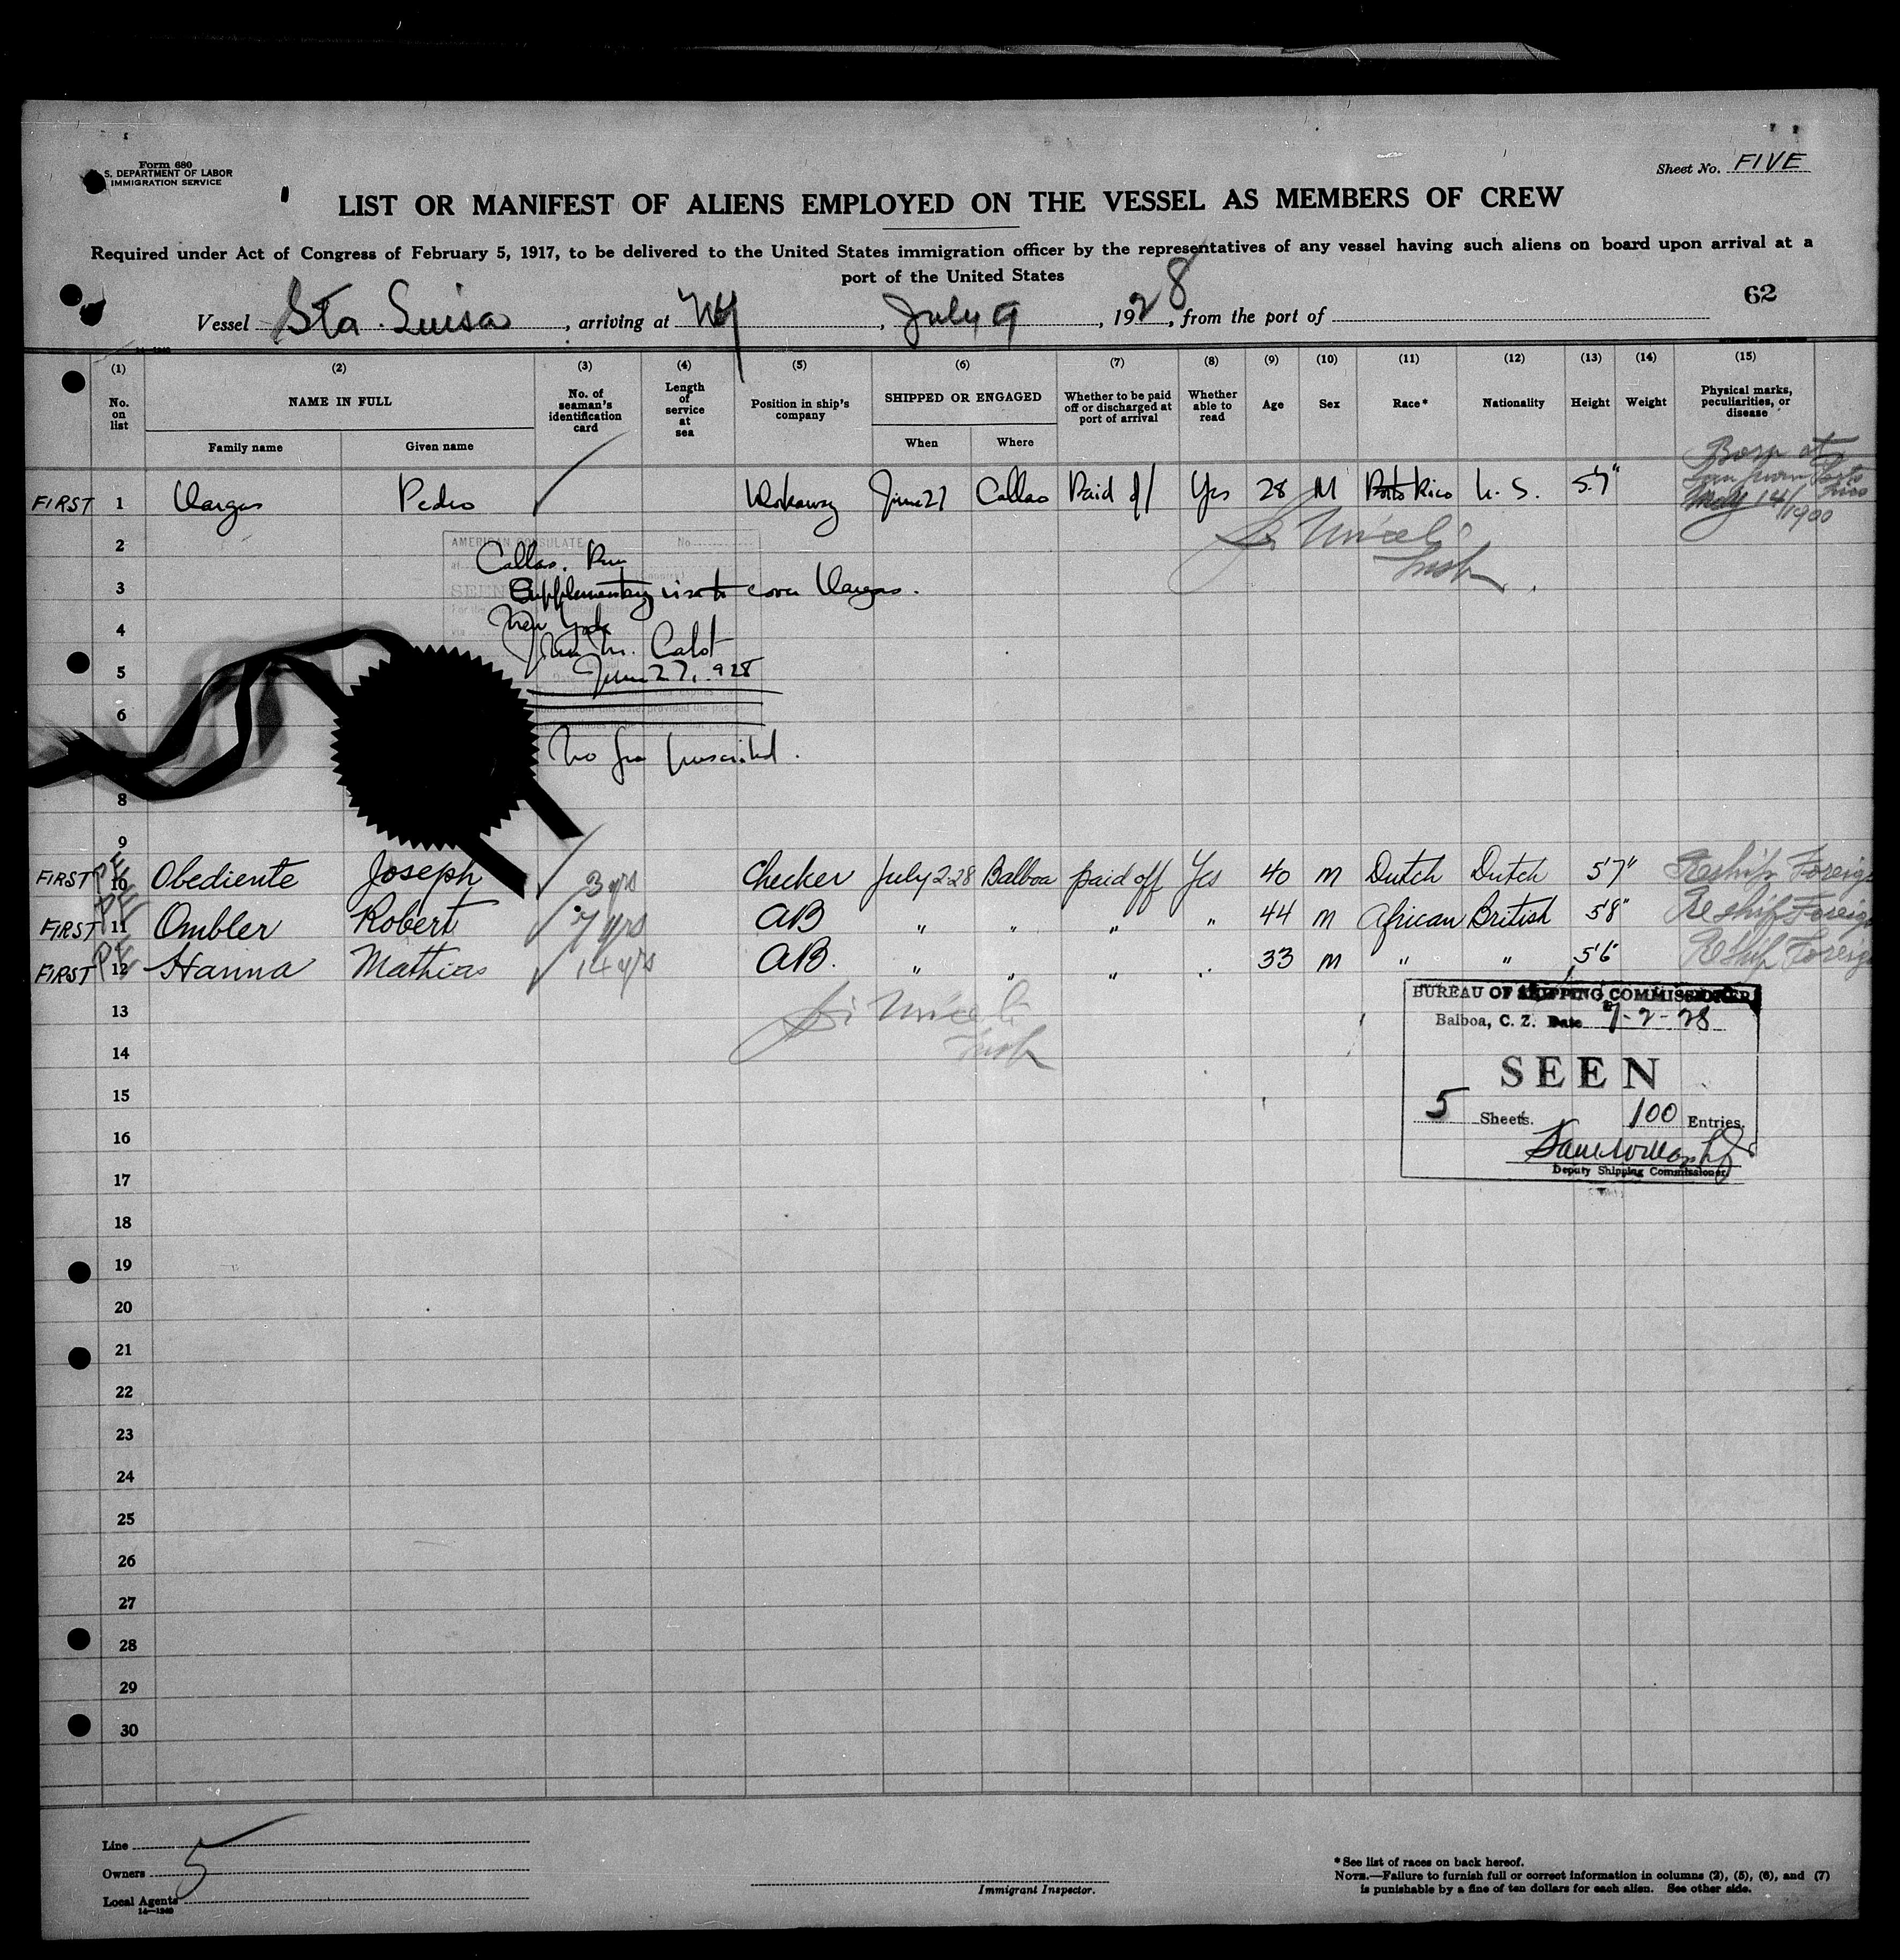 Form 680
S. DEPARTMENT OF LABOR
IMMIGRATION SERVICE
Sheet No. FIVE
LIST OR MANIFEST OF ALIENS EMPLOYED ON THE VESSEL AS MEMBERS OF CREW
Required under Act of Congress of February 5, 1917, to be delivered to the United States immigration officer by the representatives of any vessel having such aliens on board upon arrival at a
port of the United States
62
Vessel Sta. Luisa, arriving at NY, July 9, 1928, from the port of
(1) (2) (3) (4) (5) (6) (7) (8) (9) (10) (11) (12) (13) (14) (15)
No. on list NAME IN FULL No. of seaman's identification card Length of service at sea Position in ship's company SHIPPED OR ENGAGED Whether to be paid off or discharged at port of arrival Whether able to read Age Sex Race* Nationality Height Weight Physical marks, peculiarities, or disease
Family name Given name When Where
Born at
San Juan Porto Rico
May 14/1900
FIRST 1 Vargas Pedro Workaway June 27 Callao Paid off Yes 28 M Porto Rico U. S. 5'7"
2
AMERICAN CONSULATE No.
Callao, Peru
3 Supplementary visa to cover Vargas.
4 New York
5 June 27, 928
6
No fee prescribed.
8
9
FIRST PE 10 Obediente Joseph 3 yrs Checker July 2 28 Balboa paid off Yes 40 M Dutch Dutch 5'7" Reship Foreign
FIRST PE 11 Ombler Robert 7 yrs AB " " " " 44 M African British 5'8" Reship Foreign
FIRST PE 12 Hanna Mathias 14 yrs AB. " " " " 33 M " " 5'6" Reship Foreign
13
BUREAU OF SHIPPING COMMISSIONER
Balboa, C. Z. Date 7-2-28
14
SEEN
15
5 Sheets. 100 Entries.
16
Deputy Shipping Commissioner
17
18
19
20
21
22
23
24
25
26
27
28
29
30
Line
Owners 5
Local Agents
14—1240
Immigrant Inspector.
*See list of races on back hereof.
NOTE.—Failure to furnish full or correct information in columns (2), (5), (6), and (7)
is punishable by a fine of ten dollars for each alien. See other side.